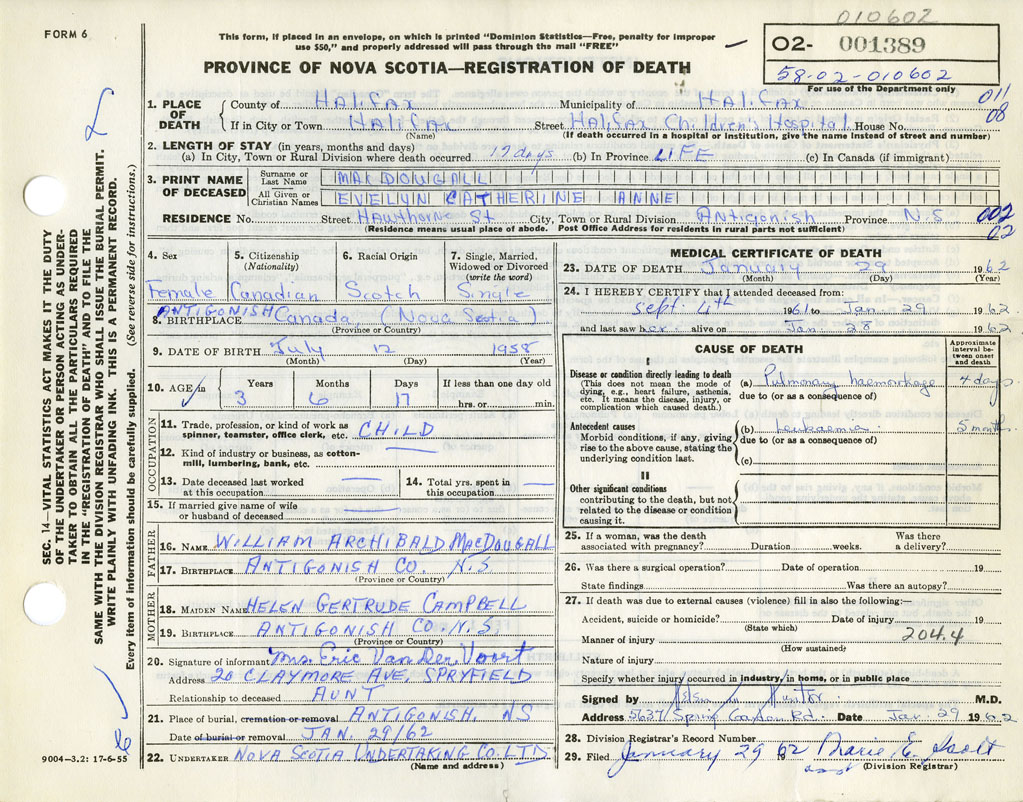 010602
FORM 6
This form, if placed in an envelope, on which is printed "Dominion Statistics—Free, penalty for improper
use $50," and properly addressed will pass through the mail "FREE"
02- 001389
58-02-010602
For use of the Department only
PROVINCE OF NOVA SCOTIA—REGISTRATION OF DEATH
011
08
1. PLACE OF DEATH
County of Halifax Municipality of Halifax
If in City or Town Halifax Street Halifax Children's Hospital House No.
(Name) (If death occurred in a hospital or institution, give the name instead of street and number)
2. LENGTH OF STAY (in years, months and days)
(a) In City, Town or Rural Division where death occurred 17 days (b) In Province LIFE (c) In Canada (if immigrant)
3. PRINT NAME OF DECEASED
Surname or Last Name MACDOUGALL
All Given or Christian Names EVELYN CATHERINE ANNE
RESIDENCE No. Street Hawthorne St City, Town or Rural Division Antigonish Province N.S
(Residence means usual place of abode. Post Office Address for residents in rural parts not sufficient)
002
02
SEC. 14—VITAL STATISTICS ACT MAKES IT THE DUTY
OF THE UNDERTAKER OR PERSON ACTING AS UNDER-
TAKER TO OBTAIN ALL THE PARTICULARS REQUIRED
IN THE "REGISTRATION OF DEATH" AND TO FILE THE
SAME WITH THE DIVISION REGISTRAR WHO SHALL ISSUE THE BURIAL PERMIT.
WRITE PLAINLY WITH UNFADING INK. THIS IS A PERMANENT RECORD.
Every item of information should be carefully supplied. (See reverse side for instructions.)
4. Sex
Female
5. Citizenship
(Nationality)
Canadian
6. Racial Origin
Scotch
7. Single, Married,
Widowed or Divorced
(write the word)
Single
8. BIRTHPLACE ANTIGONISH Canada, (Nova Scotia)
(Province or Country)
9. DATE OF BIRTH July 12 1958
(Month) (Day) (Year)
10. AGE in
Years Months Days If less than one day old
3 6 17 hrs. or min.
OCCUPATION
11. Trade, profession, or kind of work as
spinner, teamster, office clerk, etc. CHILD
12. Kind of industry or business, as cotton-
mill, lumbering, bank, etc.
13. Date deceased last worked
at this occupation
14. Total yrs. spent in
this occupation
15. If married give name of wife
or husband of deceased
FATHER
16. NAME WILLIAM ARCHIBALD MACDOUGALL
17. BIRTHPLACE ANTIGONISH CO. N.S
(Province or Country)
MOTHER
18. MAIDEN NAME HELEN GERTRUDE CAMPBELL
19. BIRTHPLACE ANTIGONISH CO. N.S
(Province or Country)
20. Signature of informant Mrs Eric Van Der Voort
Address 20 CLAYMORE AVE, SPRYFIELD
Relationship to deceased AUNT
21. Place of burial, cremation or removal ANTIGONISH, NS
Date of burial or removal JAN. 29/62
22. UNDERTAKER NOVA SCOTIA UNDERTAKING CO. LTD
(Name and address)
9004-3.2: 17-6-55
MEDICAL CERTIFICATE OF DEATH
23. DATE OF DEATH January 29 1962
(Month) (Day) (Year)
24. I HEREBY CERTIFY that I attended deceased from:
Sept. 4th 1961 to Jan. 29 1962
and last saw her alive on Jan. 28 1962
CAUSE OF DEATH
Approximate
interval be-
tween onset
and death
I
Disease or condition directly leading to death
(This does not mean the mode of
dying, e.g., heart failure, asthenia,
etc. It means the disease, injury, or
complication which caused death.)
(a) Pulmonary haemorrhage 4 days
due to (or as a consequence of)
Antecedent causes
Morbid conditions, if any, giving
rise to the above cause, stating the
underlying condition last.
(b) leukaemia 5 months
due to (or as a consequence of)
(c)
II
Other significant conditions
contributing to the death, but not
related to the disease or condition
causing it.
25. If a woman, was the death
associated with pregnancy? Duration weeks. Was there
a delivery?
26. Was there a surgical operation? Date of operation 19
State findings Was there an autopsy?
27. If death was due to external causes (violence) fill in also the following:—
Accident, suicide or homicide? Date of injury 19
(State which)
Manner of injury 204.4
(How sustained)
Nature of injury
Specify whether injury occurred in industry, in home, or in public place
Signed by M.D.
Address 5637 Spring Garden Rd. Date Jan. 29 1962
28. Division Registrar's Record Number
29. Filed January 29 1962 Marie E. Scott
asst (Division Registrar)